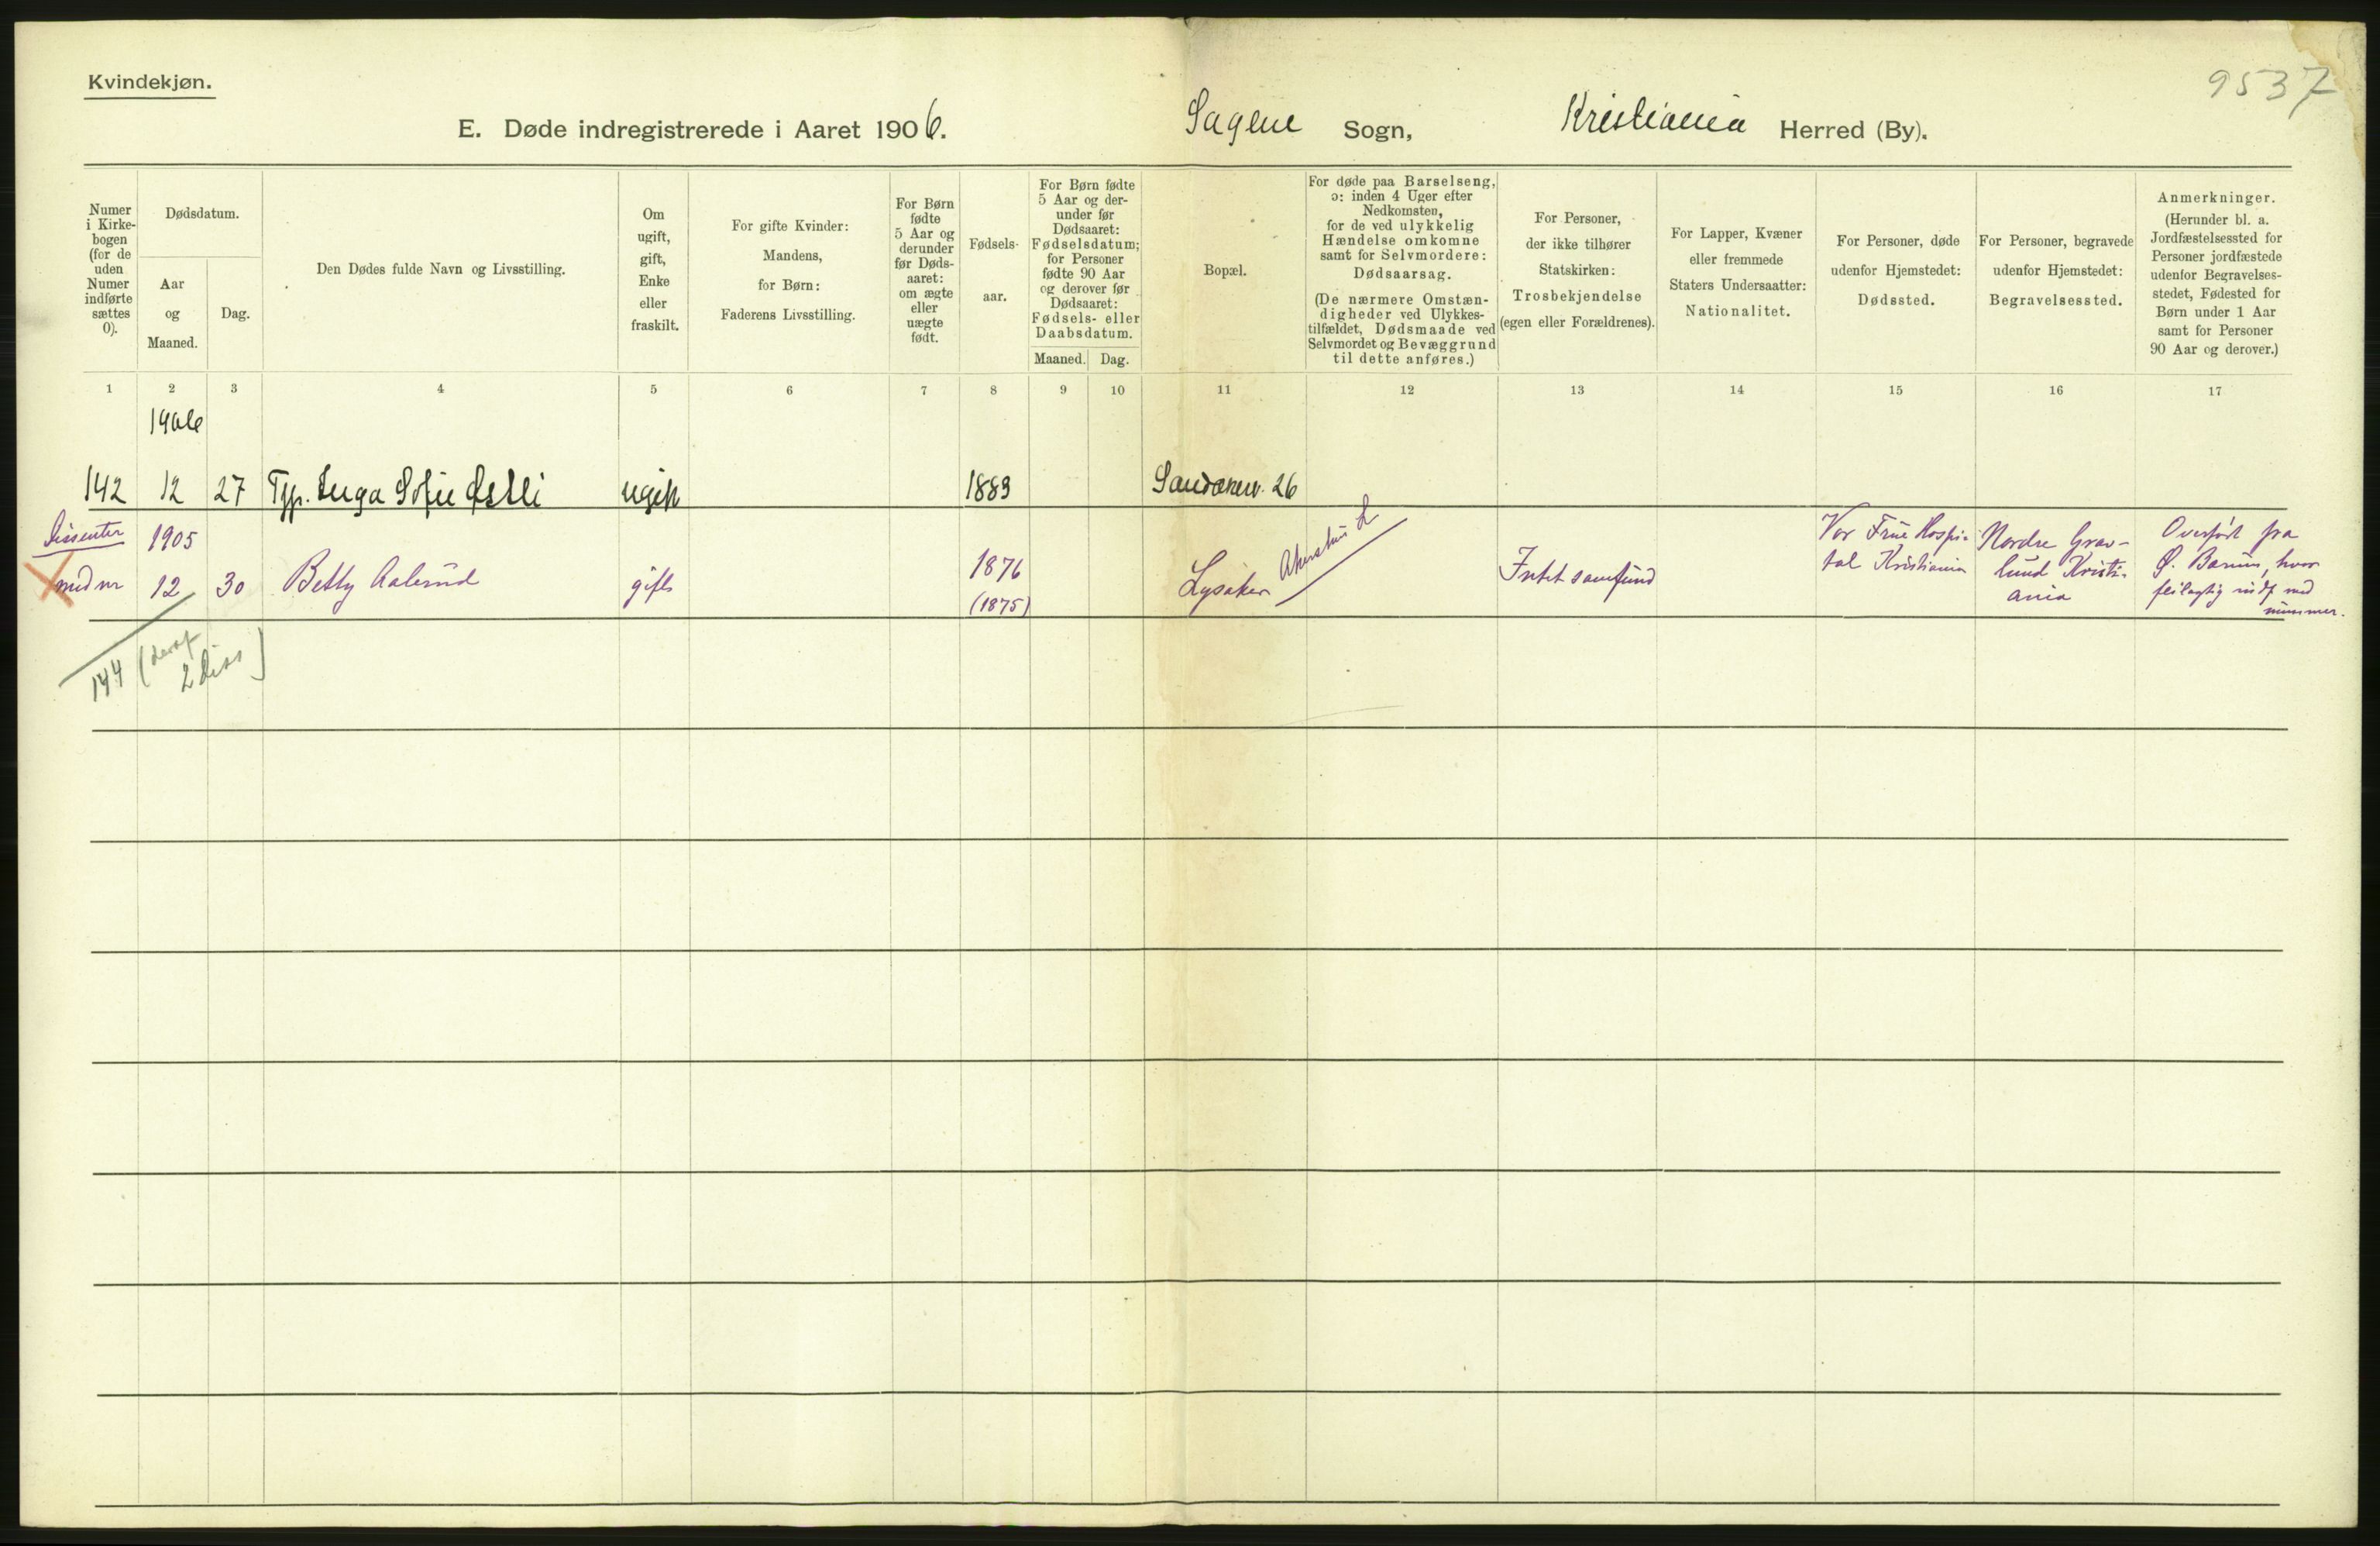 Kvindekjøn.
9537
E. Døde indregistrerede i Aaret 1906. Sagene Sogn, Kristiania Herred (By).
Numer
i Kirke-
bogen
(for de
uden
Numer
indførte
sættes
0).
Dødsdatum.
Aar
og
Maaned.
Dag.
Den Dødes fulde Navn og Livsstilling.
Om
ugift,
gift,
Enke
eller
fraskilt.
For gifte Kvinder:
Mandens,
for Børn:
Faderens Livsstilling.
For Børn
fødte
5 Aar og
derunder
før Døds-
aaret:
om ægte
eller
uægte
født.
Fødsels-
aar.
For Børn fødte
5 Aar og der-
under før
Dødsaaret:
Fødselsdatum;
for Personer
fødte 90 Aar
og derover før
Dødsaaret:
Fødsels- eller
Daabsdatum.
Maaned. Dag.
Bopæl.
For døde paa Barselseng,
ɔ: inden 4 Uger efter
Nedkomsten,
for de ved ulykkelig
Hændelse omkomne
samt for Selvmordere:
Dødsaarsag.
(De nærmere Omstæn-
digheder ved Ulykkes-
tilfældet, Dødsmaade ved
Selvmordet og Bevæggrund
til dette anføres.)
For Personer,
der ikke tilhører
Statskirken:
Trosbekjendelse
(egen eller Forældrenes).
For Lapper, Kvæner
eller fremmede
Staters Undersaatter:
Nationalitet.
For Personer, døde
udenfor Hjemstedet:
Dødssted.
For Personer, begravede
udenfor Hjemstedet:
Begravelsessted.
Anmerkninger.
(Herunder bl. a.
Jordfæstelsessted for
Personer jordfæstede
udenfor Begravelses-
stedet, Fødested for
Børn under 1 Aar
samt for Personer
90 Aar og derover.)
1 2 3 4 5 6 7 8 9 10 11 12 13 14 15 16 17
1906
142 12 27 Typ. Inga Sofie Østli ugift 1889 Sandakerv. 26
Dissenter 1905
12 30 Betty Aalerud gift 1876 (1875) Lysaker Akershus Intet samfund
Vor Frue Hospi-
tal Kristiania
Nordre Grav-
lund Kristi-
ania
Overført fra
Ø. Bærum, hvor
feilagtig indf med
nummer.
144 (deraf
2 diss)